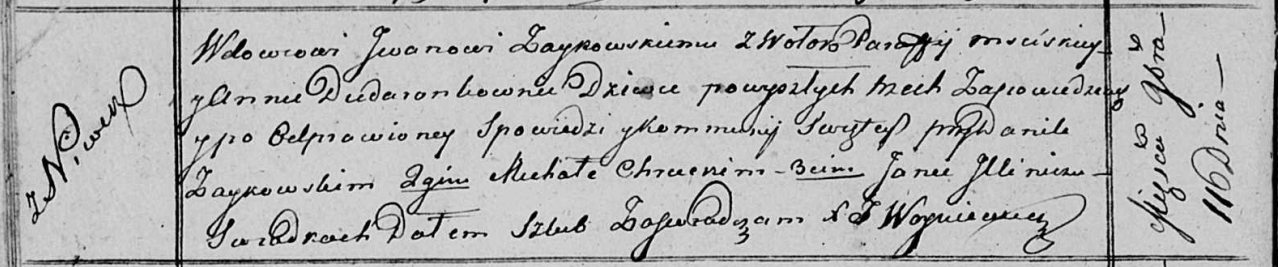 z Niwek
Wdowcowi Jwanowi Zaykowskiemu z Wołok Parafij msciskiey
y Annie Dudaronkownie Dziewce powyszłych trzech Zapowiedziach
ypo Odprawioney Spowiedzi ykommunij Swiętey przy Danile
Zaykowskim 2gim Michale Chruckim 3cim Janie Jlliniczu
Swiadkach Dałem Szlub Zaswiadczam X J Woyniewicz
Miesca 9bra
116 Dnia